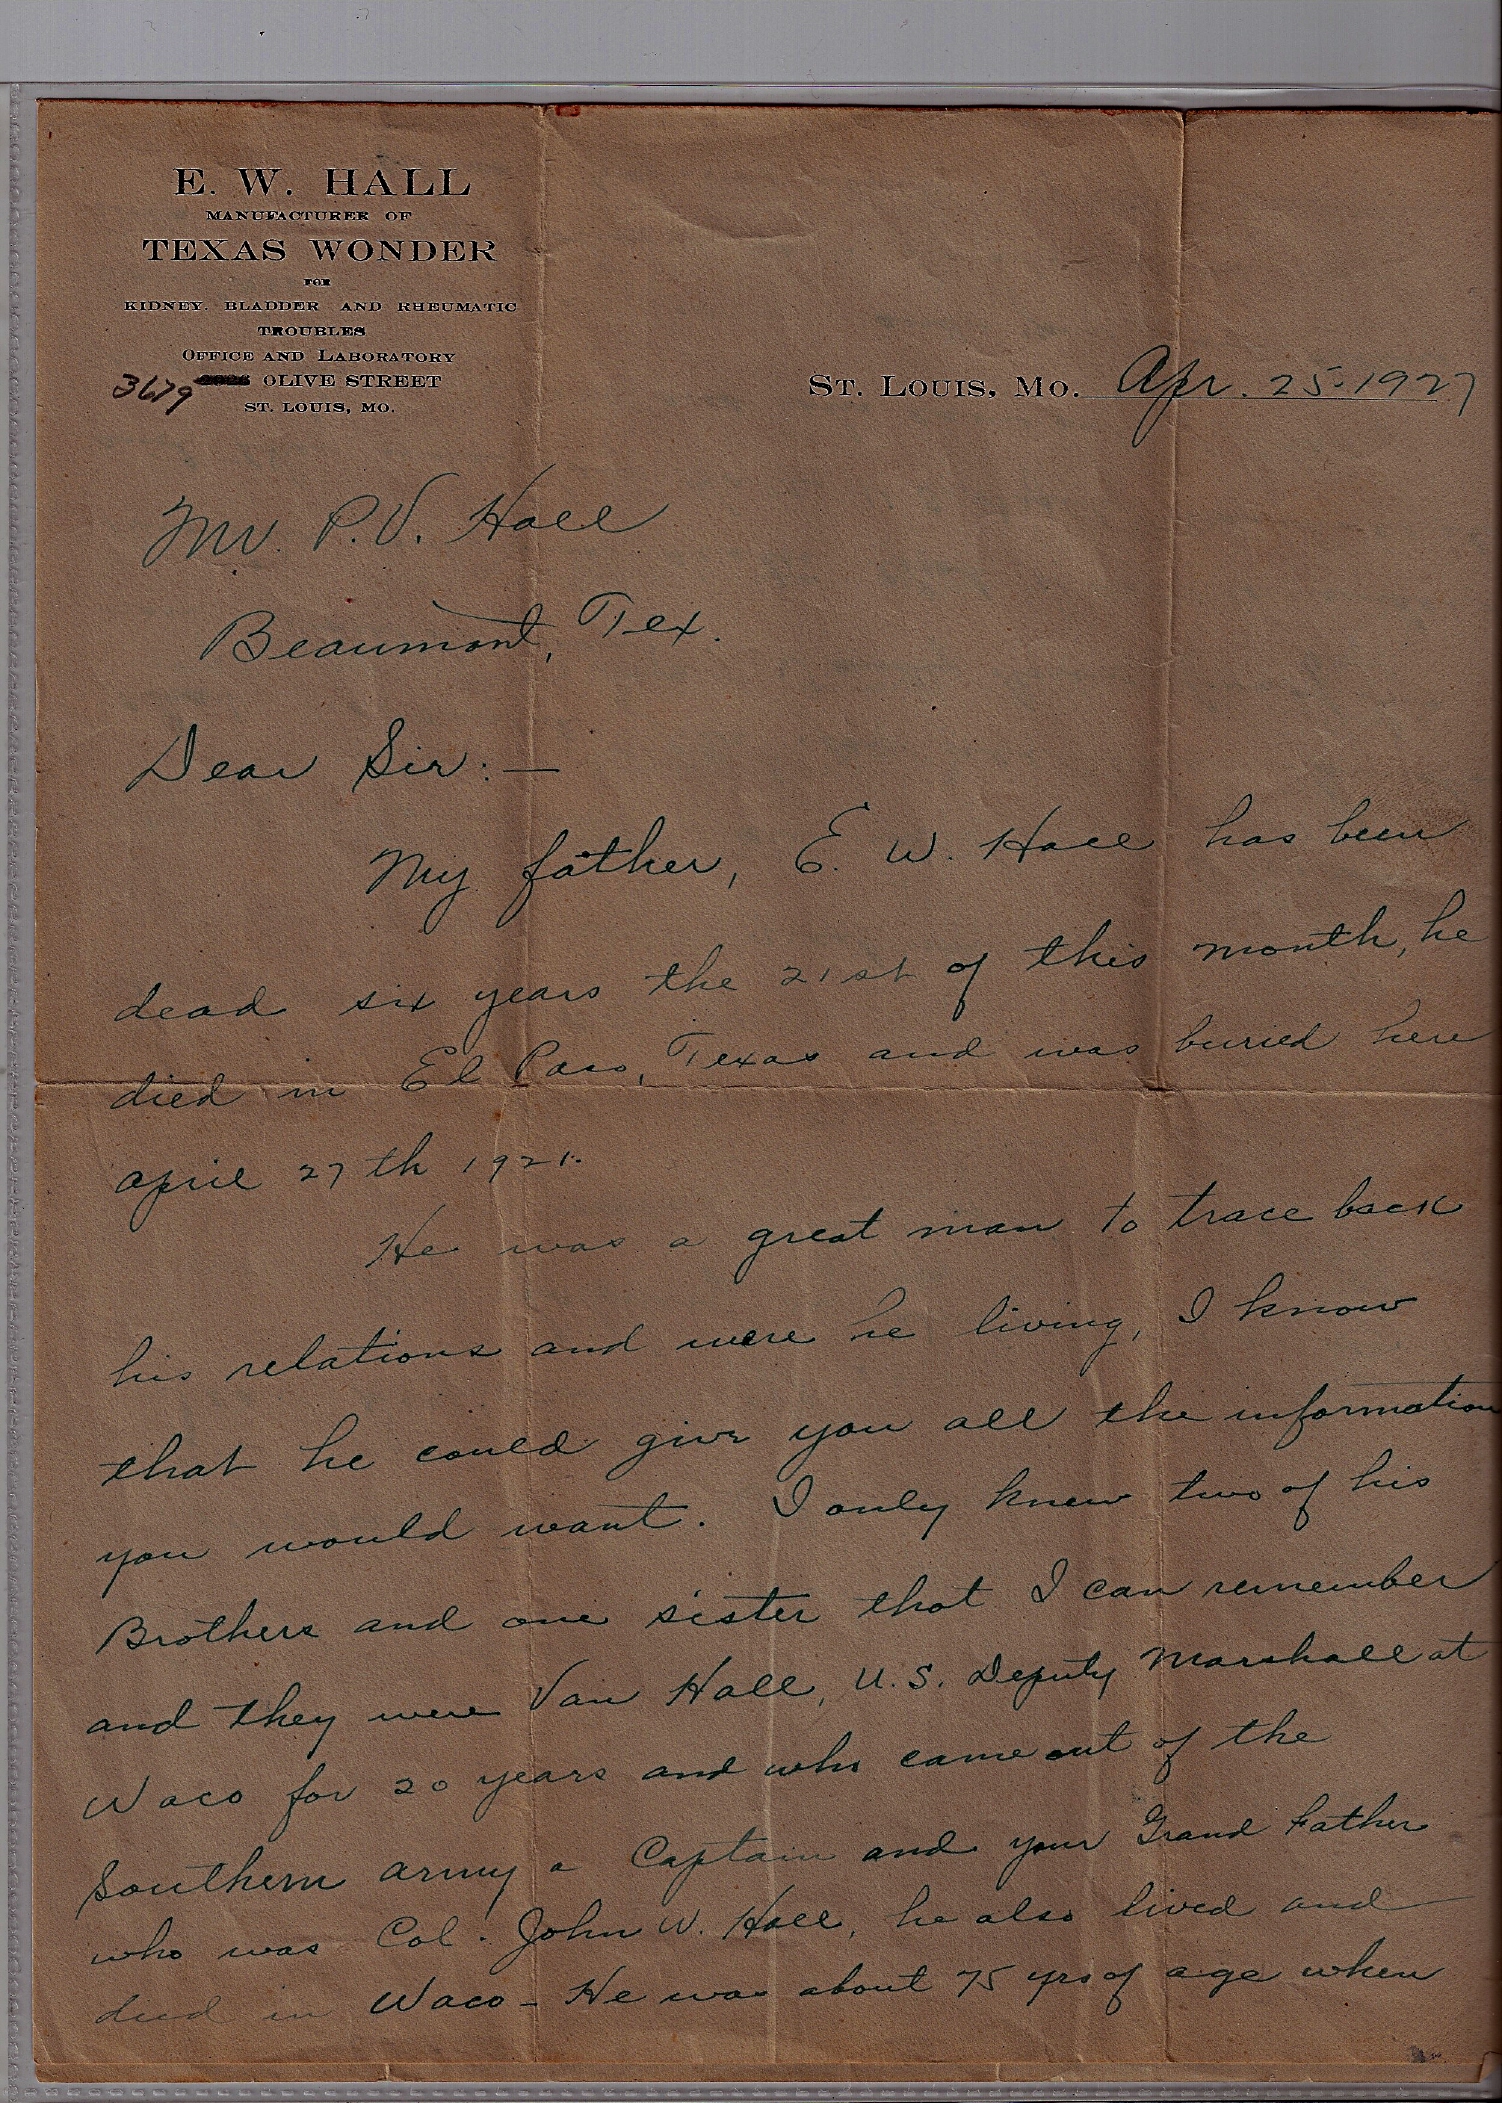 E. W. HALL
MANUFACTURER OF
TEXAS WONDER
FOR
KIDNEY, BLADDER AND RHEUMATIC
TROUBLES
OFFICE AND LABORATORY
3679 OLIVE STREET
ST. LOUIS, MO.
ST. LOUIS, MO. Apr. 25. 1927
Mr. P. V. Hall
Beaumont, Tex.
Dear Sir: —
My father, E. W. Hall has been
dead six years the 21st of this month, he
died in El Paso, Texas and was buried here
april 27th 1921.
He was a great man to trace back
his relations and were he living, I know
that he could give you all the information
you would want. I only knew two of his
Brothers and one sister that I can remember
and they were Van Hall, U.S. Deputy Marshall at
Waco for 20 years and who came out of the
Southern army a Captain and your Grand Father
who was Col. John W. Hall, he also lived and
died in Waco - He was about 75 yrs of age when